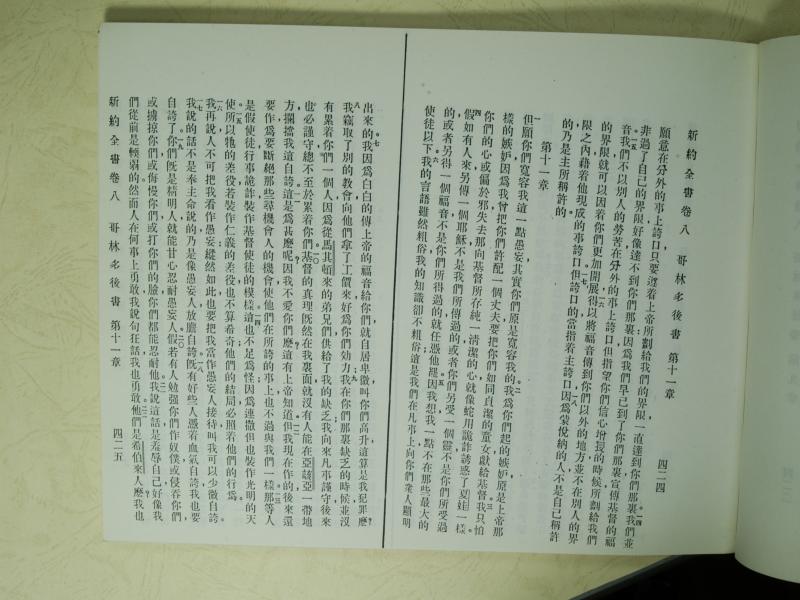 新約全書卷八 哥林多後書 第十一章 四二四
願意在分外的事上誇口只要遵着上帝所劃給我們的界限一直達到你們那裏我們並
非過了自己的界限好像達不到你們那裏因爲我們早已到了你們那裏宣傳基督的福
音我們不以別人的勞苦在分外的事上誇口但指望你們信心增長的時候所劃給我們
的界限就可以因着你們更加開展得以將福音傳到你們以外的地方並不在別人的界
限之內藉着他現成的事誇口但誇口的當指着主誇口因爲蒙悅納的人不是自己稱許
的乃是主所稱許的
第十一章
但願你們寬容我這一點愚妄其實你們原是寬容我的我爲你們起的嫉妒原是上帝那
樣的嫉妒因爲我曾把你們許配一個丈夫要把你們如同貞潔的童女獻給基督我只怕
你們的心或偏於邪失去那向基督所存純一清潔的心就像蛇用詭詐誘惑了夏娃一樣
假如有人來另傳一個耶穌不是我們所傳過的或者你們另受一個靈不是你們所受過
的或者另得一個福音不是你們所得過的就任憑他罷因我想我一點不在那些最大的
使徒以下我的言語雖然粗俗我的知識卻不粗俗這是我們在凡事上向你們衆人顯明
出來的我因爲白白的傳上帝的福音給你們就自居卑微叫你們高升這算是我犯罪麼
我竊取了別的教會向他們拿了工價來好爲你們効力我在你們那裏缺乏的時候並沒
有累着你們一個人因爲從馬其頓來的弟兄們供給了我的缺乏我向來凡事謹守後來
也必謹守總不至於累着你們基督的真理既然在我裏面就沒有人能在亞該亞一帶地
方攔擋我這自誇這是爲甚麼呢因我不愛你們麼這有上帝知道但我現在作的後來還
要作爲要斷絕那些尋機會人的機會使他們在所誇的事上也不過與我們一樣那等人
是假使徒行事詭詐裝作基督使徒的模樣這也不足爲怪因爲連撒但也裝作光明的天
使所以牠的差役若裝作仁義的差役也不算希奇他們的結局必照着他們的行爲
我再說人不可把我看作愚妄縱然如此也要把我當作愚妄人接待叫我可以少微自誇
我說的話不是奉主命說的乃是像愚妄人放膽自誇既有好些人憑着血氣自誇我也要
自誇了你們既是精明人就能甘心忍耐愚妄人假若有人勉强你們作奴僕或侵吞你們
或擄掠你們或侮慢你們或打你們的臉你們都能忍耐他我說這話是羞辱自己好像我
們從前是輭弱的然而人在何事上勇敢我說句狂話我也勇敢他們是希伯來人麼我也
新約全書卷八 哥林多後書 第十一章 四二五